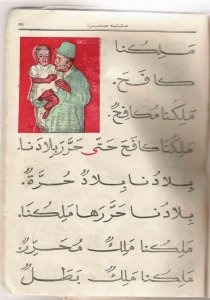 حكاية صغيرة
مَلِكُنا
كافَحَ.
مَلِكُنا مُكافِحٌ.
مَلِكُنا كافَحَ حَتّى حَرَّرَ بِلادَنا.
بِلادُنا بِلادٌ حُرَّةٌ.
بِلادُنا حَرَّرَها مَلِكُنا.
مَلِكُنا مَلِكٌ مُحَرِّرٌ.
مَلِكُنا مَلِكٌ بَطَلٌ